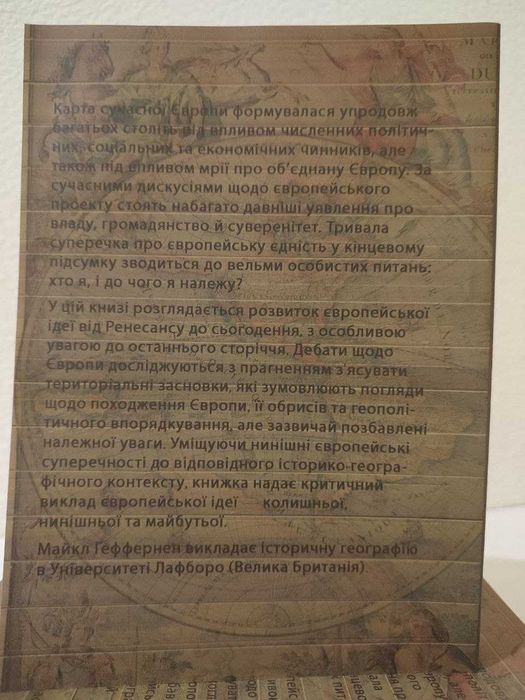 MAP
DU
Карта сучасної Європи формувалася упродовж
багатьох століть під впливом численних політич-
них, соціальних та економічних чинників, але
також під впливом мрії про об'єднану Європу. За
сучасними дискусіями щодо європейського
проекту стоять набагато давніші уявлення про
владу, громадянство й суверенітет. Тривала
суперечка про європейську єдність у кінцевому
підсумку зводиться до вельми особистих питань:
хто я, і до чого я належу?
У цій книзі розглядається розвиток європейської
ідеї від Ренесансу до сьогодення, з особливою
увагою до останнього сторіччя. Дебати щодо
Європи досліджуються з прагненням з'ясувати
територіальні засновки, які зумовлюють погляди
щодо походження Європи, її обрисів та геополі-
тичного впорядкування, але зазвичай позбавлені
належної уваги. Уміщуючи нинішні європейські
суперечності до відповідного історико-геогра-
фічного контексту, книжка надає критичний
виклад європейської ідеї колишньої,
нинішньої та майбутьої.
Майкл Геффернен викладає історичну географію
в Університеті Лафборо (Велика Британія)